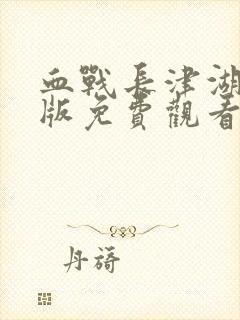 血戰長津湖
版免費觀看
丹蒳